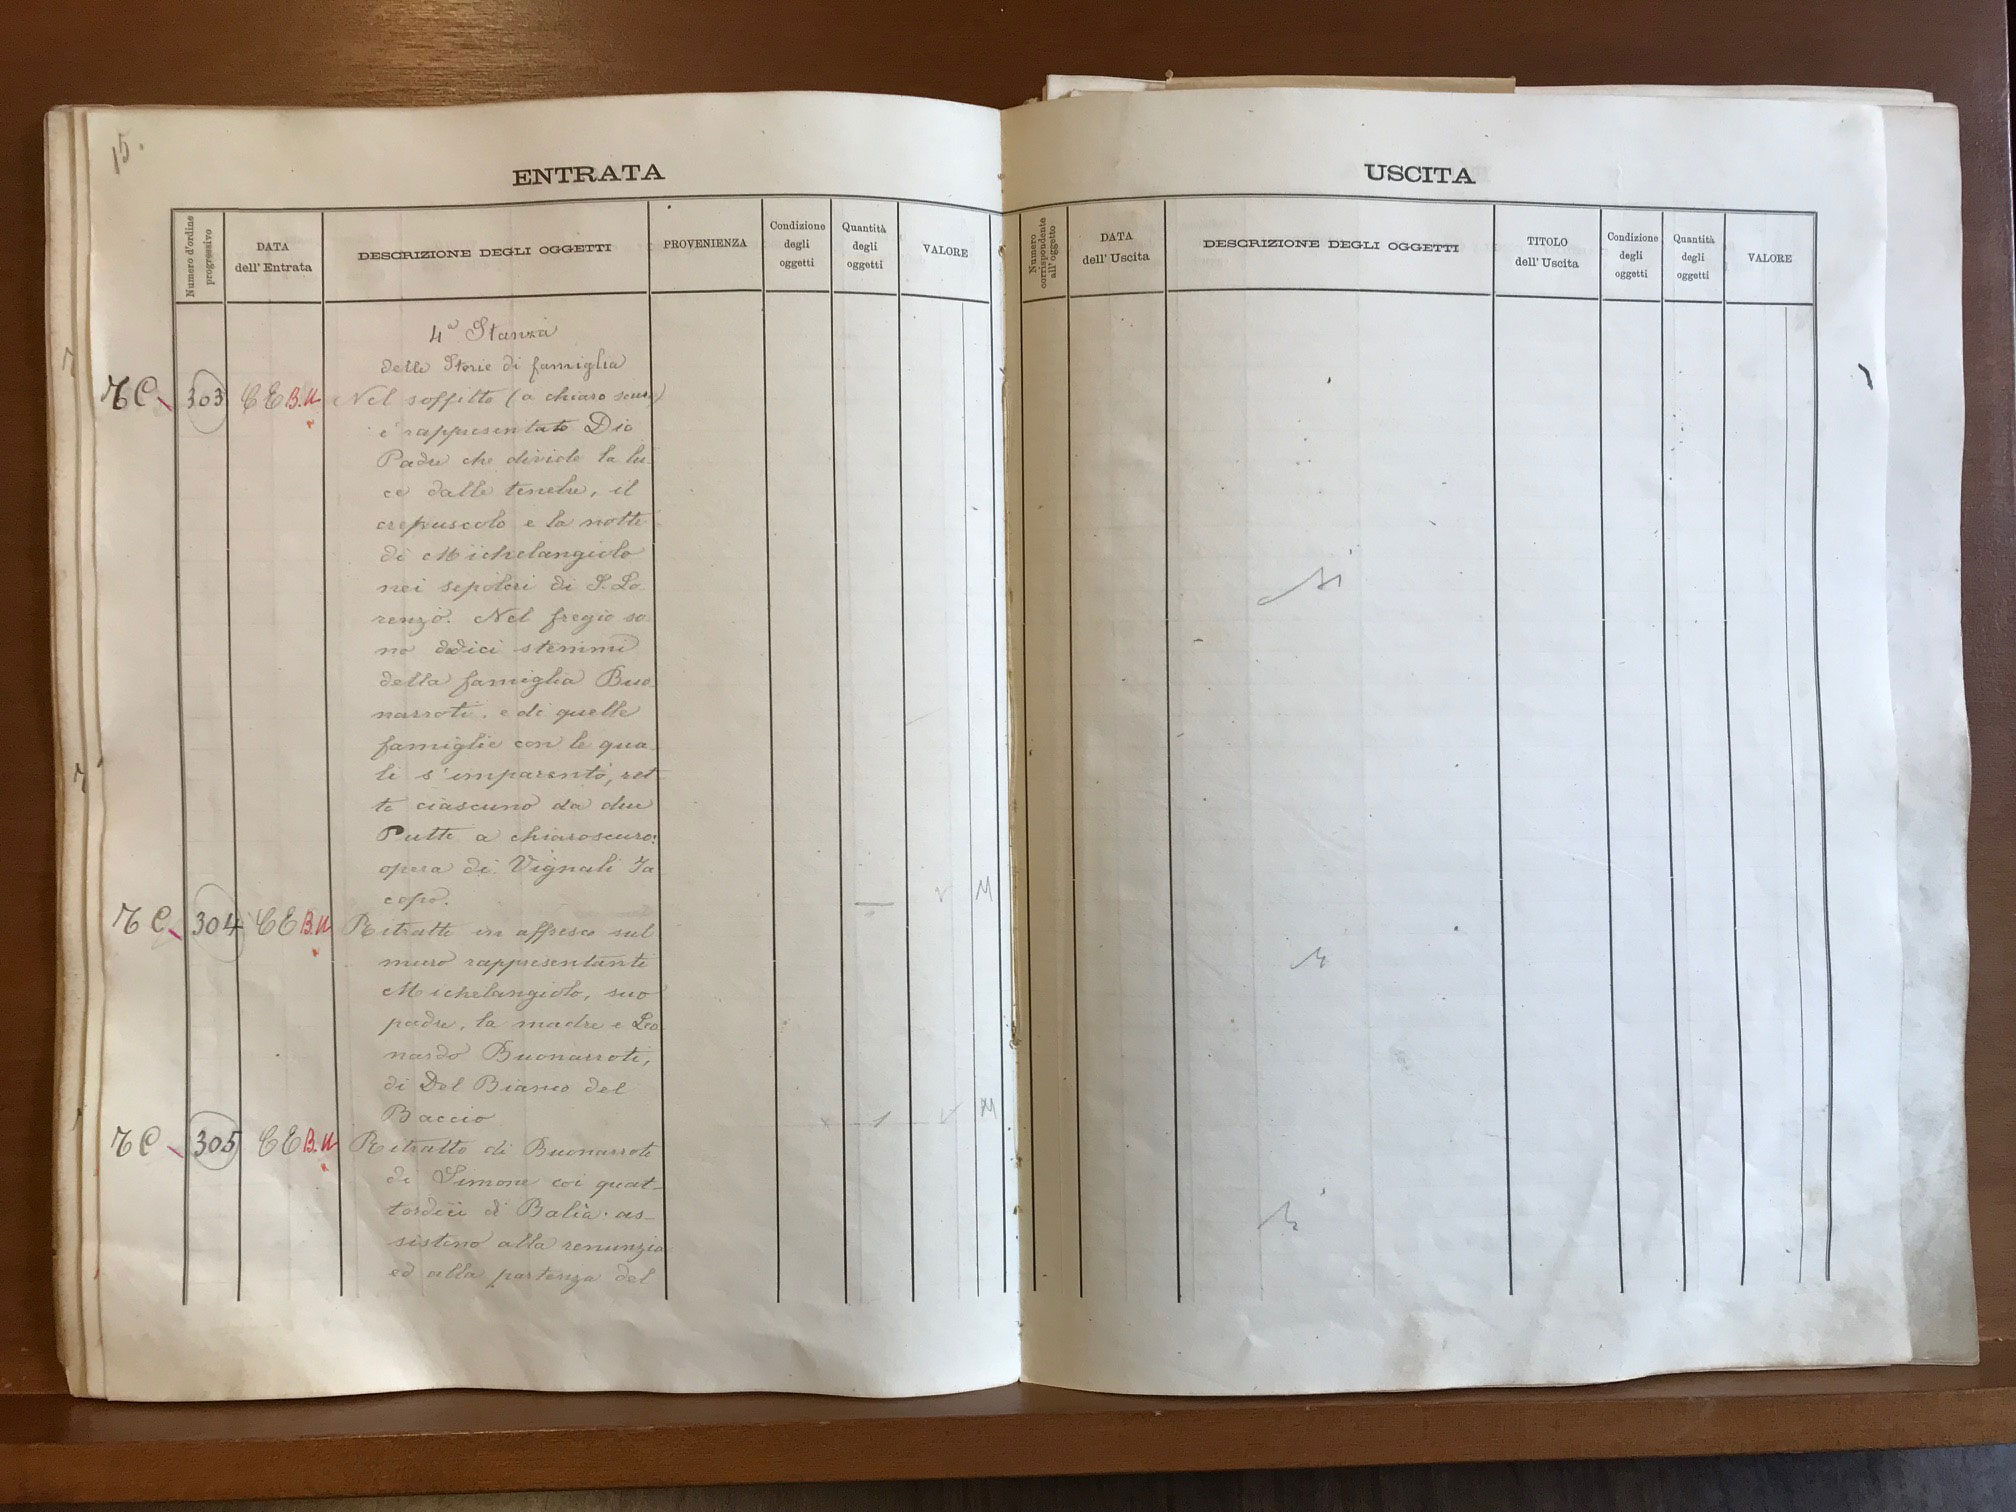 15.
ENTRATA
Numero d'ordine progressivo
DATA dell'Entrata
DESCRIZIONE DEGLI OGGETTI
PROVENIENZA
Condizione degli oggetti
Quantità degli oggetti
VALORE
4ª Stanza
delle Storie di famiglia
303 CE B.U Nel soffitto (a chiaro scur.)
è rappresentato Dio
Padre che divide la lu
ce dalle tenebre, il
crepuscolo e la notte
di Michelangiolo
nei sepolcri di S. Lo
renzo. Nel fregio so
no dodici stemmi
della famiglia Buo
narroti, e di quelle
famiglie con le qua
li s'imparentò, ret
ti ciascuno da due
Putti a chiaroscuro:
opera di Vignali Ja
copo. M
304 CE B.U Ritratti in affresco sul
muro rappresentanti
Michelangiolo, suo
padre, la madre e Leo
nardo Buonarroti,
di Del Bianco del
Baccio 1 M
305 CE B.U Ritratto di Buonarroti
di Simone coi quat-
tordici di Balìa as-
sistono alla renunzia
ed alla partenza del
USCITA
Numero corrispondente all'oggetto
DATA dell'Uscita
DESCRIZIONE DEGLI OGGETTI
TITOLO dell'Uscita
Condizione degli oggetti
Quantità degli oggetti
VALORE